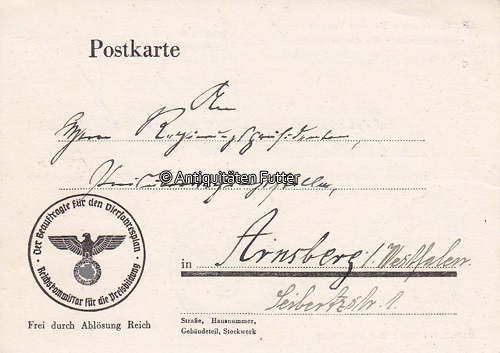 Postkarte
An
Herrn Regierungspräsidenten,
Preisüberwachungsstelle,
© Antiquitäten Futter
in Arnsberg/Westfalen.
Seibertzstr. 1.
Der Beauftragte für den Vierjahresplan
Reichskommissar für die Preisbildung
Frei durch Ablösung Reich
Straße, Hausnummer,
Gebäudeteil, Stockwerk